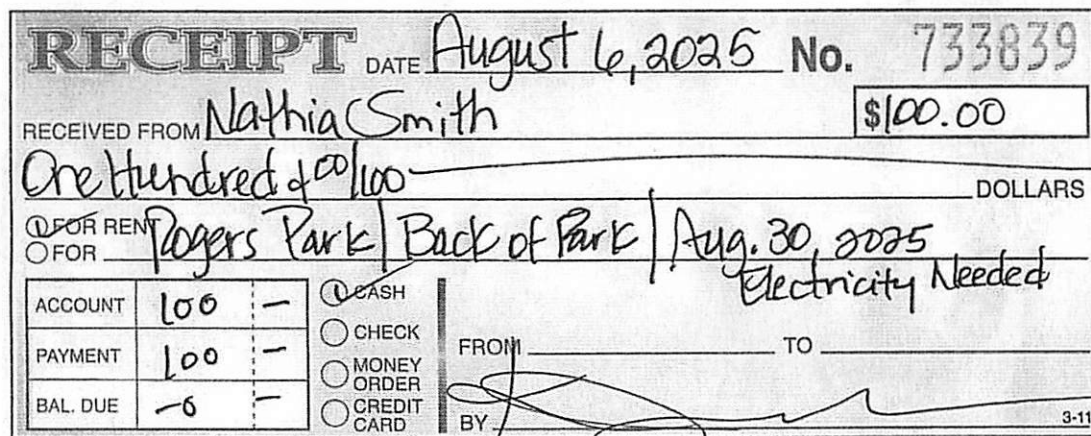 RECEIPT DATE August 6, 2025 No. 733839
RECEIVED FROM Nathia Smith $100.00
One Hundred & 00/100 DOLLARS
FOR RENT
FOR Rogers Park / Back of Park / Aug. 30, 2025
Electricity Needed
ACCOUNT 100 -
PAYMENT 100 -
BAL. DUE -0 -
CASH
CHECK
MONEY ORDER
CREDIT CARD
FROM TO
BY
3-11